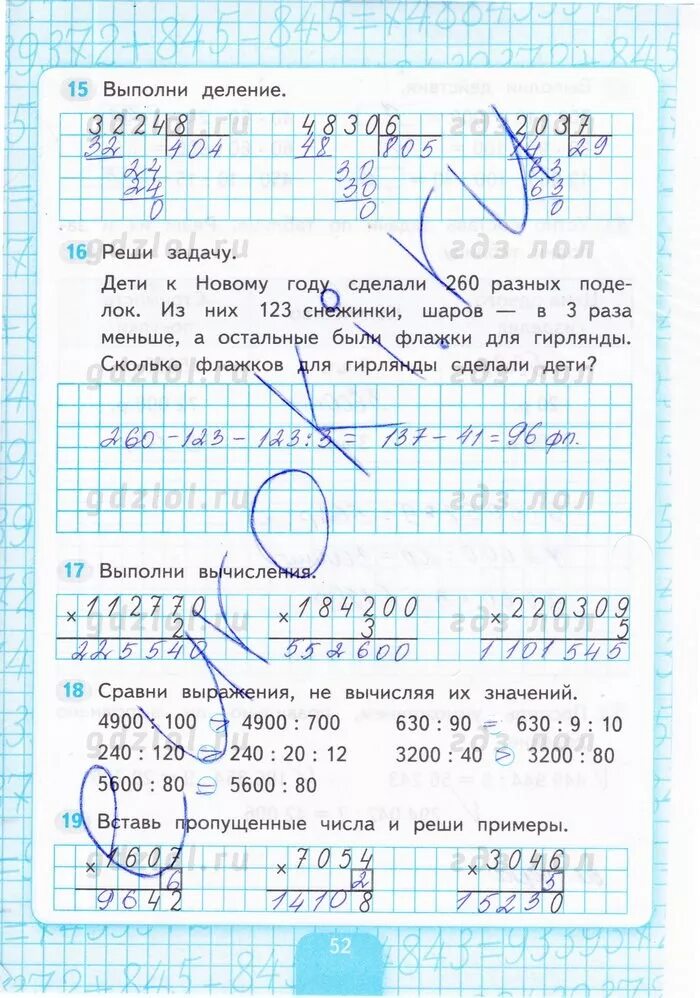 15 Выполни деление.
3224 8 4830 6 203 7
32 404 48 805 14 29
24 30 63
24 30 63
0 0 0
16 Реши задачу.
Дети к Новому году сделали 260 разных поде-
лок. Из них 123 снежинки, шаров — в 3 раза
меньше, а остальные были флажки для гирлянды.
Сколько флажков для гирлянды сделали дети?
260 - 123 - 123 : 3 = 137 - 41 = 96 фл.
gdzlol.ru гдз лол
17 Выполни вычисления.
× 112770 × 184200 × 220309
2 3 5
225540 552600 1101545
18 Сравни выражения, не вычисляя их значений.
4900 : 100 > 4900 : 700 630 : 90 = 630 : 9 : 10
240 : 120 > 240 : 20 : 12 3200 : 40 > 3200 : 80
5600 : 80 = 5600 : 80
19 Вставь пропущенные числа и реши примеры.
× 1607 × 7054 × 3046
6 2 5
9642 14108 15230
52